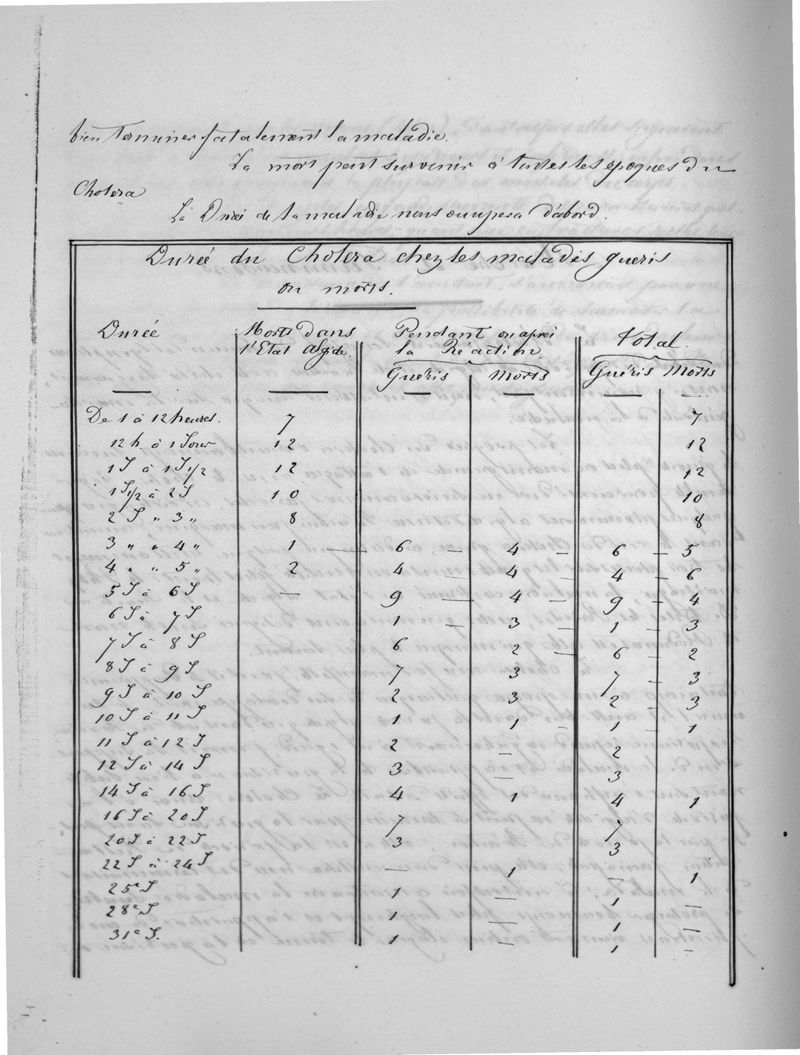 bien terminer fatalement la maladie.
La mort peut survenir à toutes les époques du
Cholera
La Durée de la maladie nous occupera d'abord.
Durée du Cholera chez les malades guéris
ou morts.
Durée | Morts dans l'Etat algide. | Pendant ou après la Réaction | Total
Guéris | Morts | Guéris | Morts
De 1 à 12 heures. 7 7
12 h. à 1 Jour 12 12
1 J à 1 J 1/2 12 12
1 J 1/2 à 2 J 10 10
2 J „ 3 „ 8 8
3 „ „ 4 „ 1 — 6 — 4 — 6 — 5
4 „ „ 5 „ 2 4 — 4 — 4 — 6
5 J à 6 J — 9 — 4 — 9 — 4
6 J à 7 J 1 — 3 — 1 — 3
7 J à 8 J 6 2 — 6 — 2
8 J à 9 J 7 3 7 — 3
9 J à 10 J 2 3 2 — 3
10 J à 11 J 1 1 — 1 — 1
11 J à 12 J 2 — 2
12 J à 14 J 3 — 3
14 J à 16 J 4 1 4 1
16 J à 20 J 7 7
20 J à 22 J 3 3
22 J à 24 J — 1 — 1
25e J 1 — 1 —
28e J 1 — 1 —
31e J. 1 — 1 —